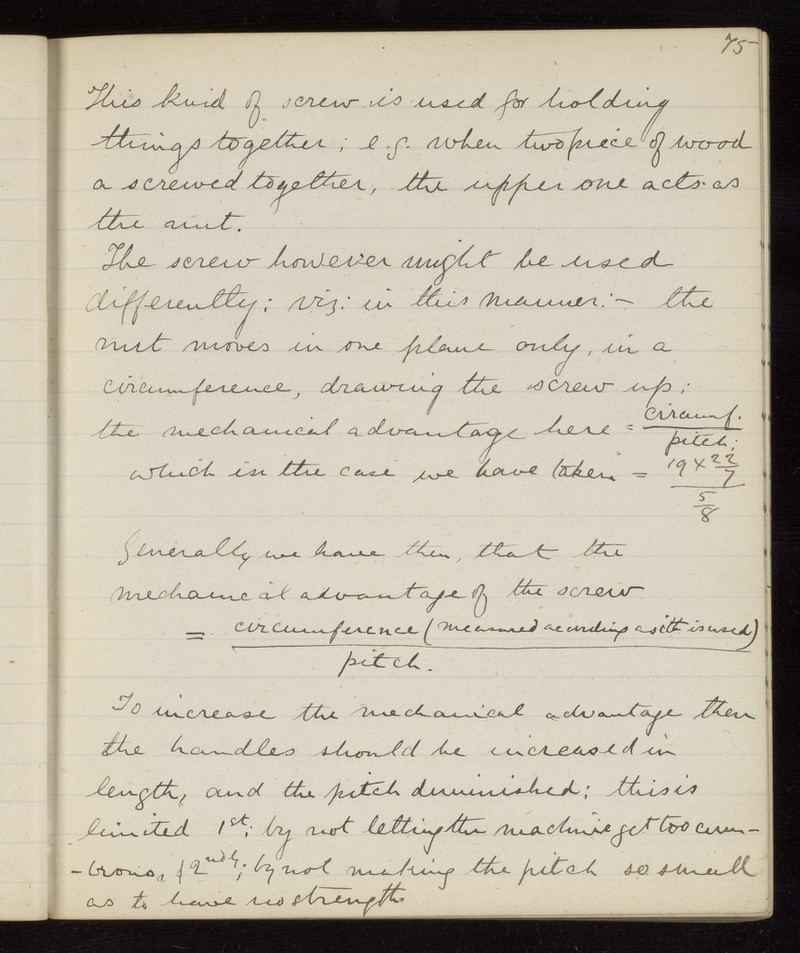 75
This kind of screw is used for holding
things together; e.g. when two piece of wood
a screwed together, the upper one acts as
the nut.
The screw however might be used
differently; viz: in this manner:- the
nut moves in one plane only, in a
circumference, drawing the screw up;
the mechanical advantage here = circumf. / pitch;
which in the case we have taken = 19 x 22/7 / 5/8
Generally we have then, that the
mechanical advantage of the screw
= circumference (measured according as it is used)
pitch.
To increase the mechanical advantage then
the handles should be increased in
length, and the pitch diminished; this is
limited 1st; by not letting the machine get too cum-
-brous, & 2ndly; by not making the pitch so small
as to have no strength.